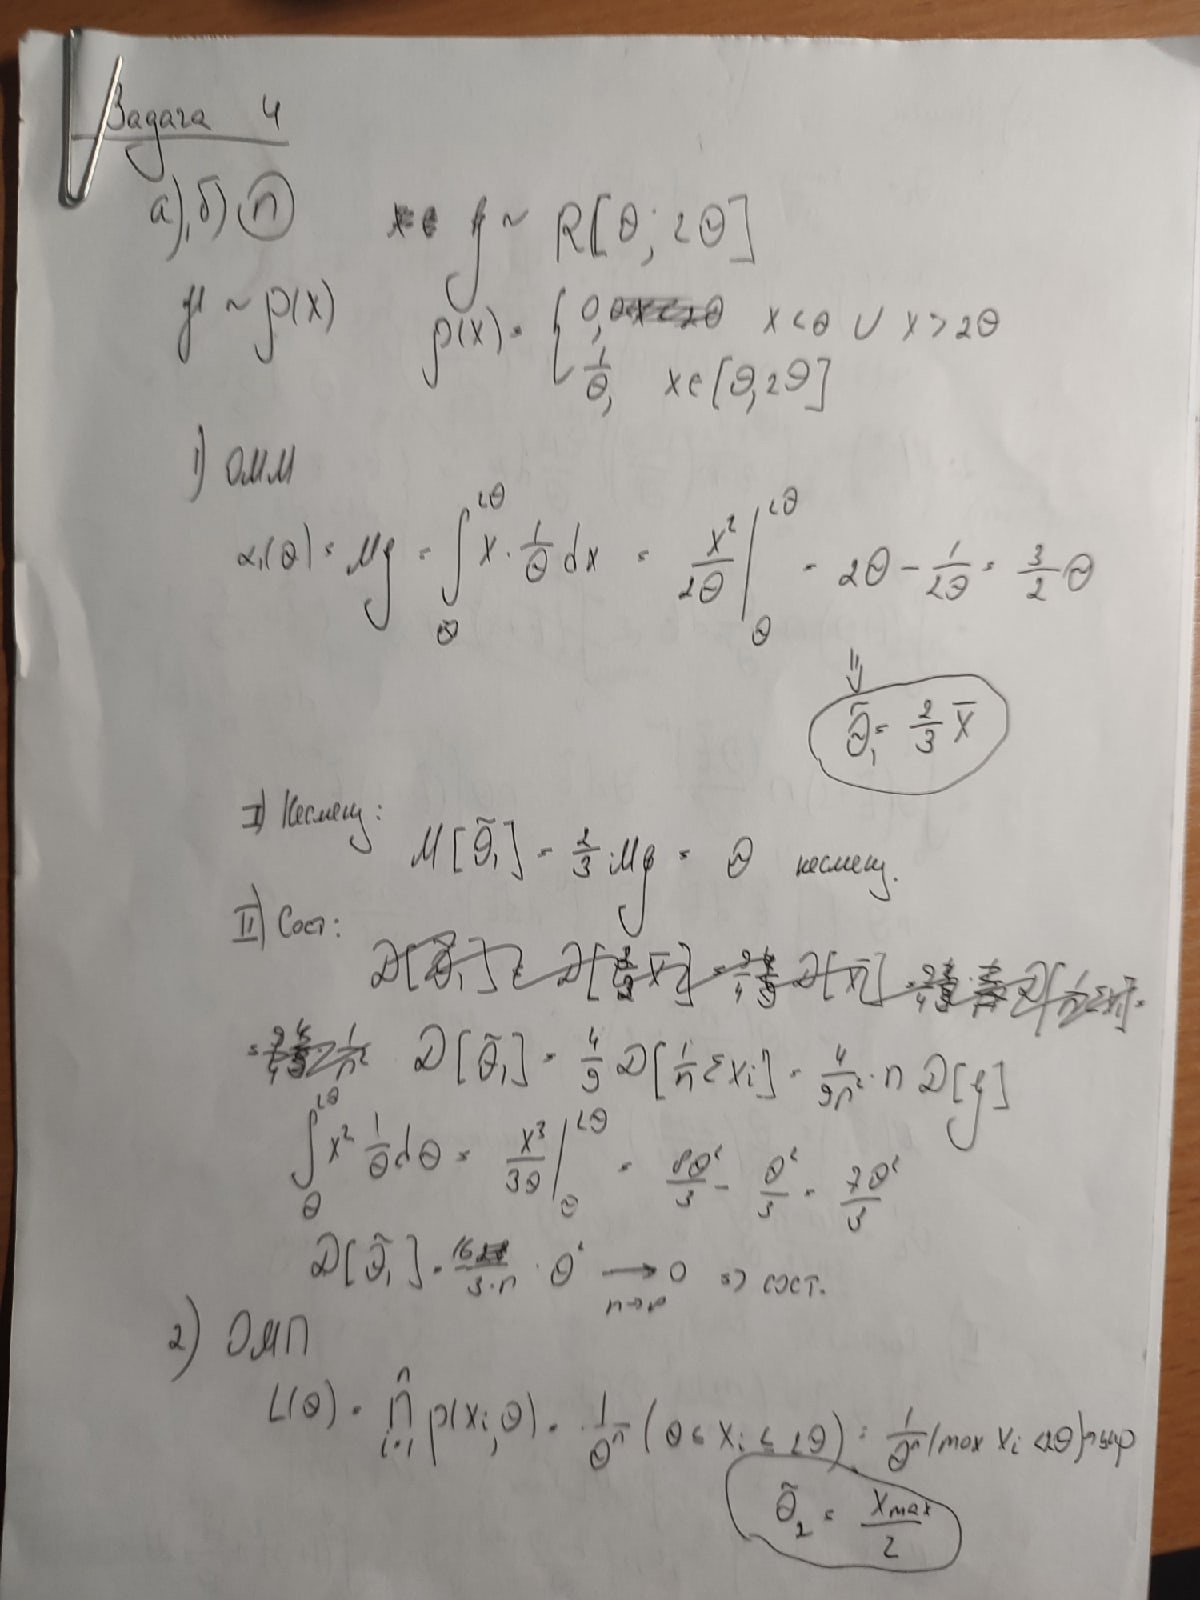 Задача 4
а), б) п
ξ ~ R[θ; 2θ]
ξ ~ p(x)
p(x) = { 0, x < θ ∪ x > 2θ
1/θ, x ∈ [θ, 2θ]
1) ОММ
α₁(θ) = Mξ = ∫_θ^{2θ} x · 1/θ dx = x²/2θ |_θ^{2θ} = 2θ − 1/2θ = 3/2 θ
⇓
θ̃₁ = 2/3 x̄
I) Несмещ:
M[θ̃₁] = 2/3 · Mξ = θ несмещ.
II) Сост:
D[θ̃₁] = 4/9 D[1/n Σxᵢ] = 4/9n² · n D[ξ]
∫_θ^{2θ} x² 1/θ dθ = x³/3θ |_θ^{2θ} = 8θ²/3 − θ²/3 = 7θ²/3
D[θ̃₁] = 16/3·n · θ² → 0 n→∞ ⇒ сост.
2) ОМП
L(θ) = ∏_{i=1}^n p(xᵢ, θ) = 1/θⁿ (θ ≤ xᵢ ≤ 2θ) = 1/θⁿ (max xᵢ < 2θ)
θ̃₂ = x_max/2